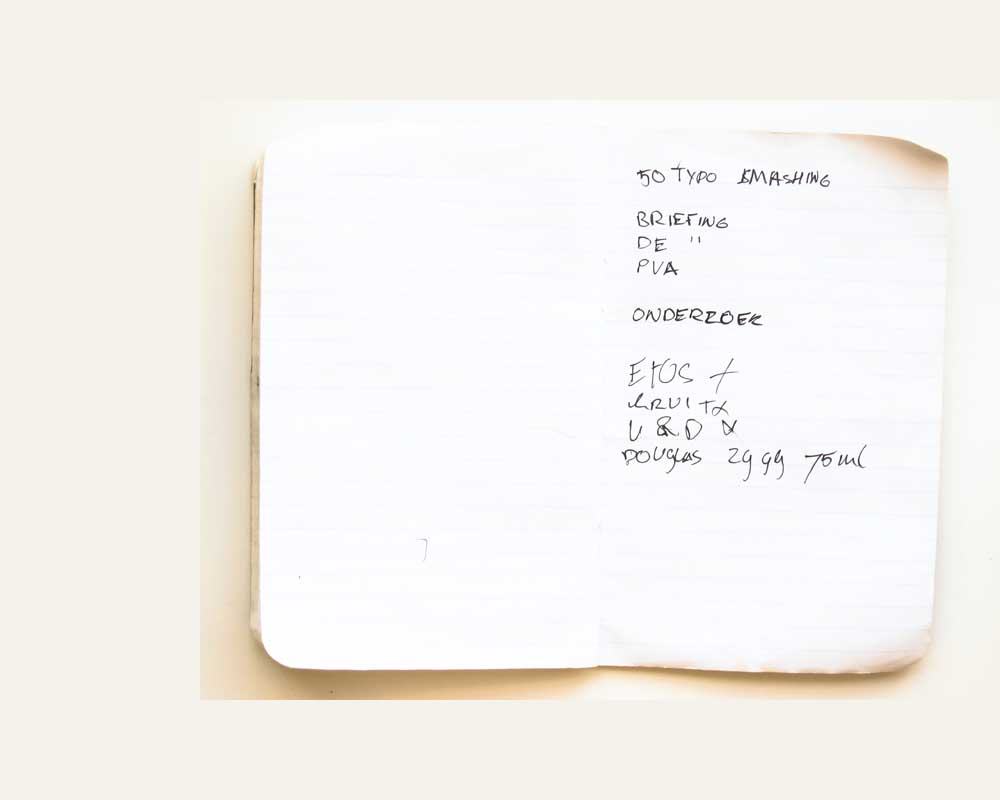 50 TYPO SMASHING
BRIEFING
DE "
PVA
ONDERZOEK
ETOS +
V & D X
DOUGLAS 29 99 75ml